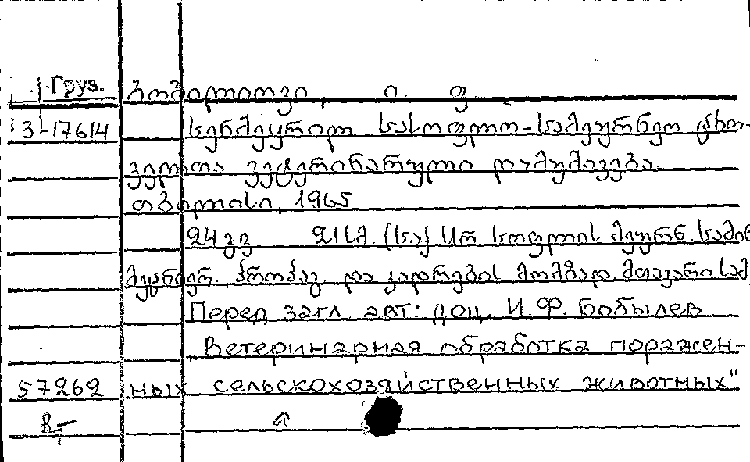 Груз. ბობილიოვი, ი. ფ.
3-17614 სენმეყრილ სასოფლო-სამეურნეო ცხო-
ველთა ვეტერინარული დამუშავება.
თბილისი, 1965
24 გვ 21 სმ. (სსრ სოფლის მეურნ. სამინ
მეცნიერ. პროპაგ. და კადრების მომზად. მთავარი სამ
Перед загл. авт: доц. И. Ф. Бобылев
Ветеринарная обработка поражен-
57262 ных сельскохозяйственных животных"